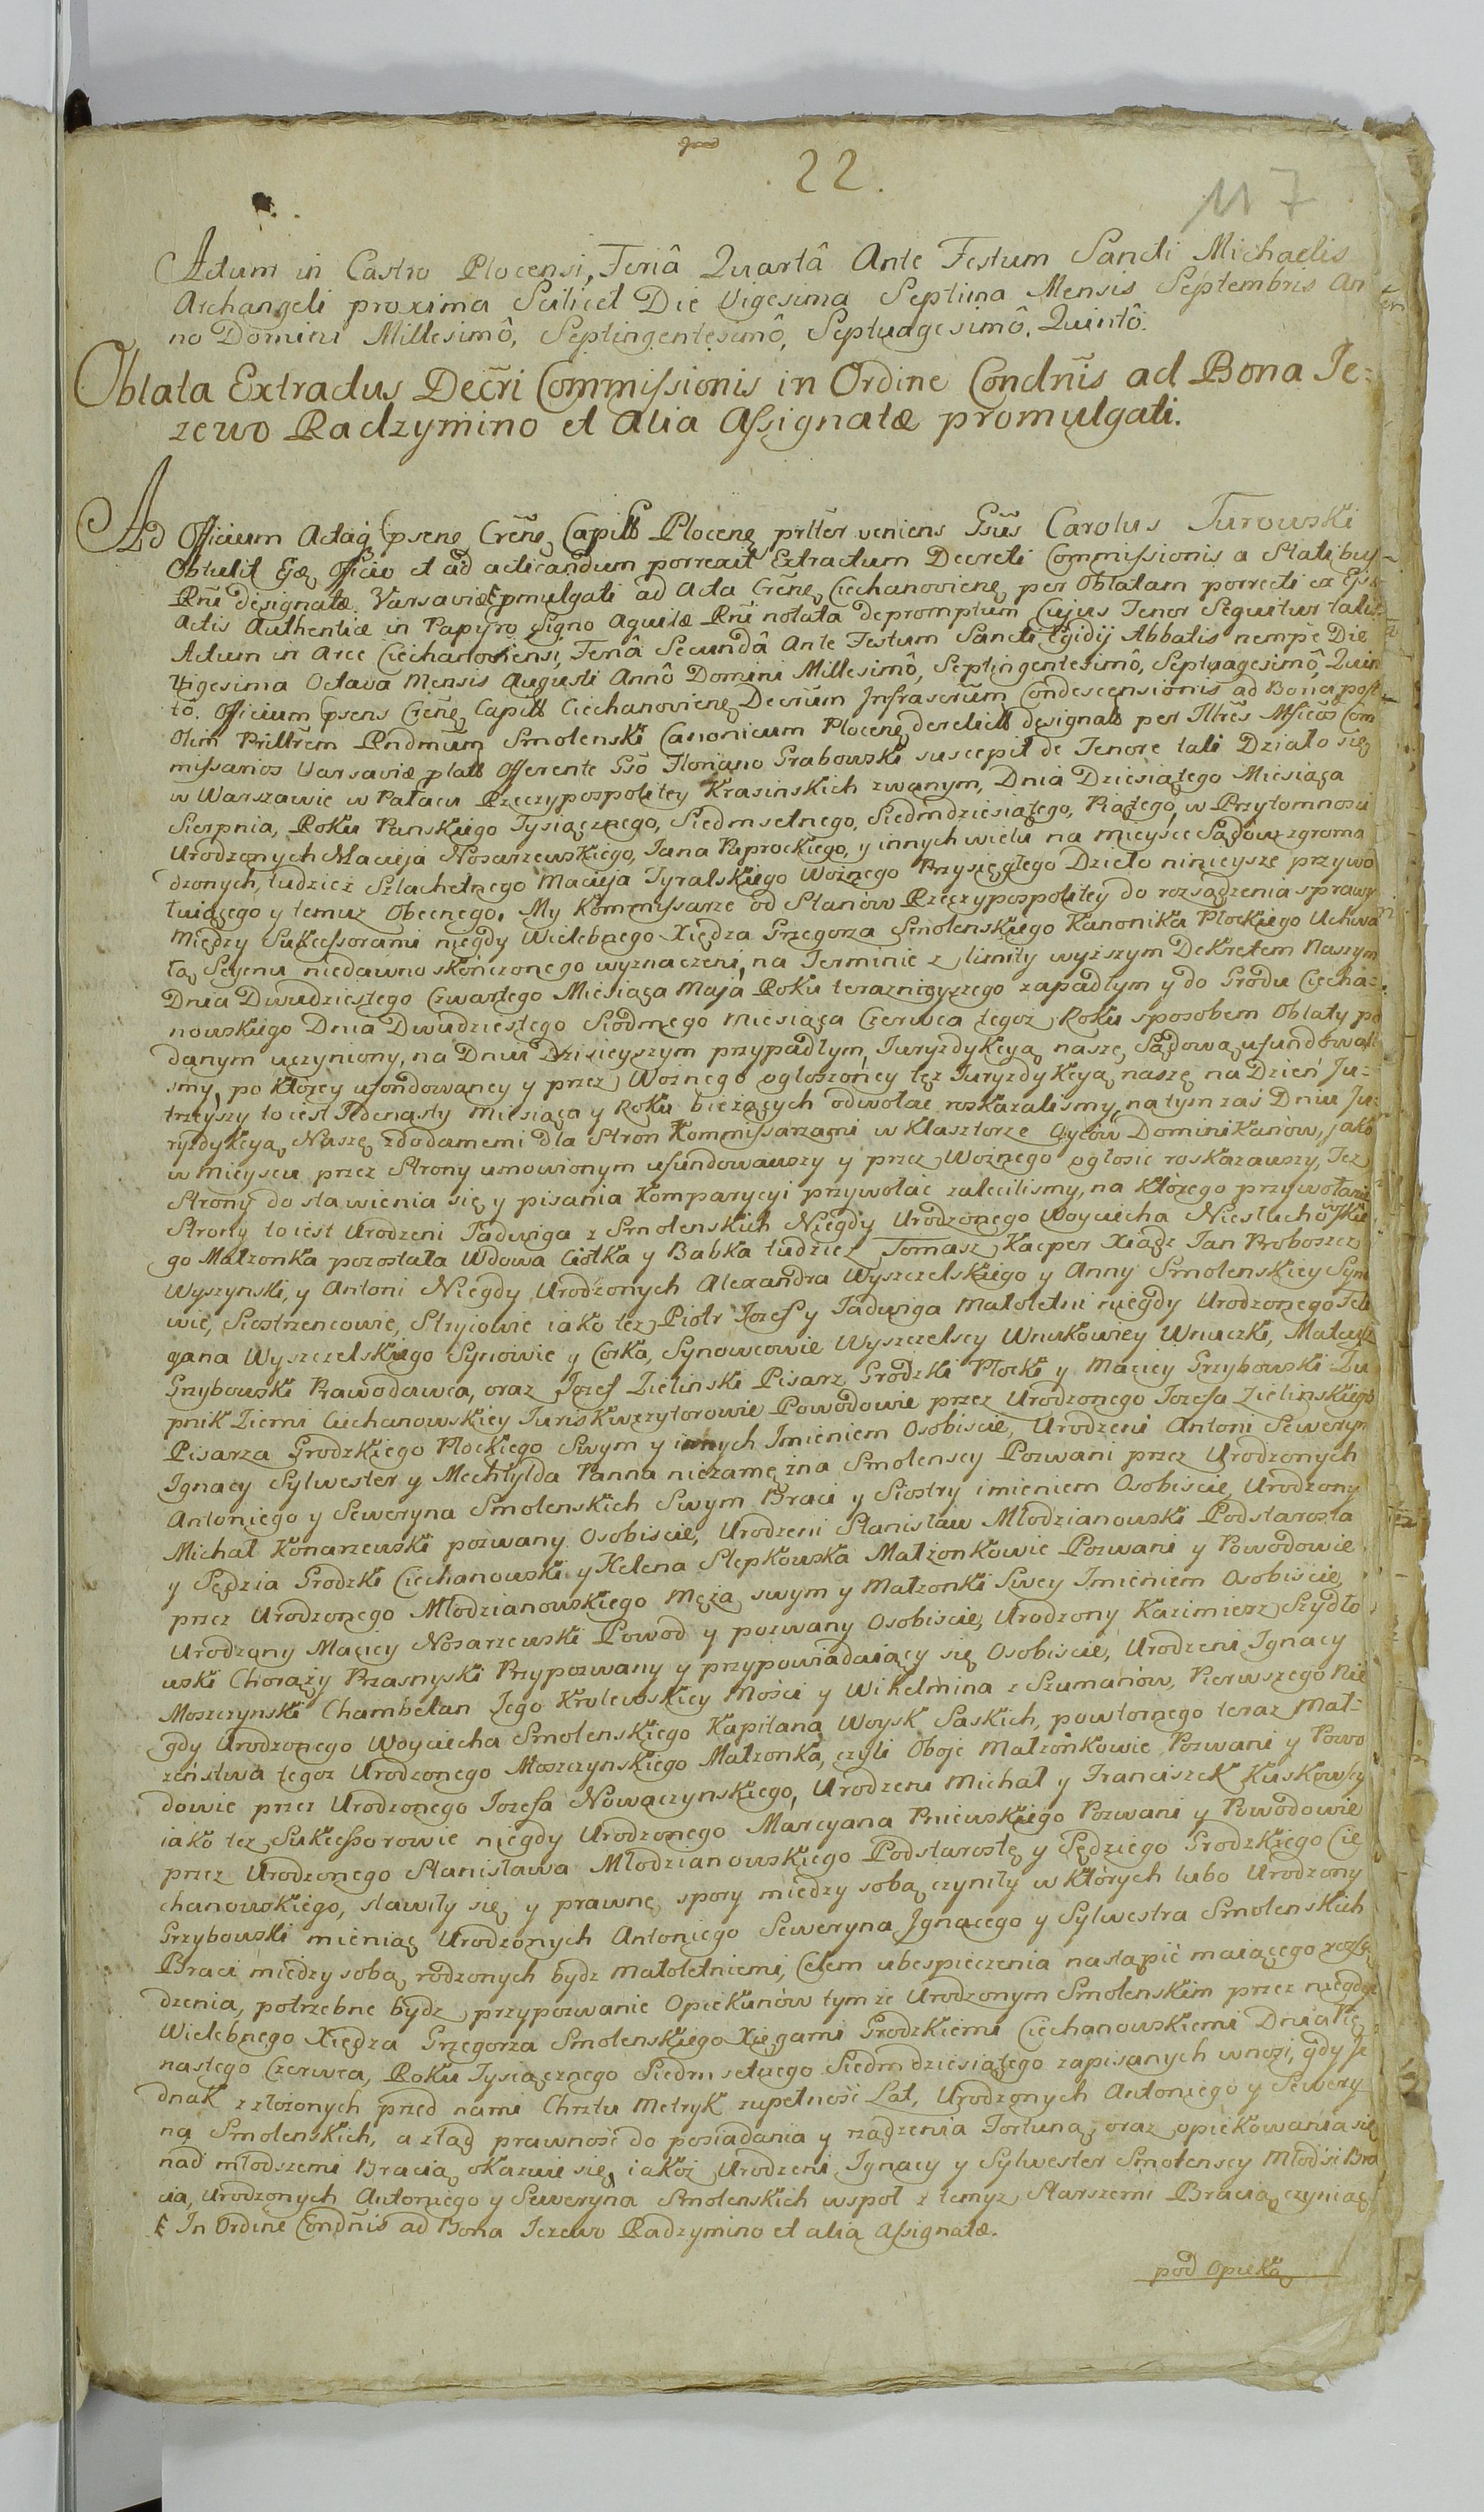 22.
117
Actum in Castro Plocensi, Feriâ Quartâ Ante Festum Sancti Michaelis
Archangeli proxima Scilicet Die Vigesima Septima Mensis Septembris An
no Domini Millesimô, Septingentesimô, Septuagesimô, Quintô.
Oblata Extractus Decr̃i Commissionis in Ordine Condñis ad Bona Je=
zewo Radzymino et alia Assignatæ promulgati.
Ad Officium Actaq psenę Cr̃enę Capitł Plocenę prltẽr veniens Gsũs Carolus Turowski
Obtulit Ejdę Officio et ad acticandum porrexit Extractum Decreti Commissionis a Statibus
Rñi designatæ Varsaviæ ŧ pmulgati ad Acta Cr̃enę Ciechanovienę per Oblatam porrecti ex Ejsdę
Actis Authentice in Papyro Signo Aquilæ Rñi notata depromptum Cujus Tenor Sequitur talis.
Actum in Arce Ciechanoviensi, Feriâ Secundâ Ante Festum Sancti Egidij Abbatis nempe Die
Vigesima Octava Mensis Augusti Annô Domini Millesimô, Septingentesimô, Septuagesimô, Quin
tô. Officium psens Cr̃enę Capitł Ciechanovienę Decrũm Infrascrũm Condescensionis ad Bona post
Olim Prlltrẽm Rndmũm Smolenski Canonicum Plocenę derelictł designatł per Illres Mficos Com
missarios Varsaviæ platł Offerente Gsõ Floriano Grabowski suscepit de Tenore tali Działo się
w Warszawie w Pałacu Rzeczypospolitey Krasinskich zwanym, Dnia Dziesiątego Miesiąca
Sierpnia, Roku Panskiego Tysiącznego, Siedmsetnego, Siedmdziesiątego, Piątego, w Przytomnosci
Urodzonych Macieja Nosarzewskiego, Jana Paprockiego, y innych wielu na mieysce Sądów zgroma
dzonych, tudziez Szlachetnego Macieja Tyralskiego Woznego Przysięgłego Dzieło ninieysze przywo
łuiącego y temuz Obecnego. My Kommissarze od Stanów Rzeczypospolitey do rozsądzenia sprawy
między Sukcessorami niegdy Wielebnego Xiędza Grzegorza Smolenskiego Kanonika Płockiego Uchwa
łą Seymu niedawno skończonego wyznaczeni, na Terminie z limity wyższym Dekretem Naszym
Dnia Dwudziestego Czwartego Miesiąca Maja Roku teraznieyszego zapadłym y do Grodu Ciecha=
nowskiego Dnia Dwudziestego Siodmego Miesiąca Czerwca tegoz Roku sposobem Oblaty po
danym uczyniony, na Dniu Dzisieyszym przypadłym, Juryzdykcyą naszę Sądową ufundowali
smy, po ktorey ufondowaney y przez Woznego ogłoszoney tęz Juryzdykcyą naszę na Dzień Ju=
trzeyszy to iest Jedenasty Miesiąca y Roku biezących odwołac roskazalismy, na tym zas Dniu Ju=
ryzdykcyą Naszę z dodanemi dla Stron Kommissarzami w Klasztorze Oyców Dominikanow, jako
w mieyscu przez Strony umowionym ufundowawszy y przez Woznego ogłosic roskazawszy, Tez
Strony do stawienia się y pisania Komparycyi przywołac zalecilismy, na którego przywołanie
Strony to iest Urodzeni Jadwiga z Smolenskich Niegdy Urodzonego Woyciecha Niestuchowskie
go Małzonka pozostała Wdowa Ciotka y Babka tudziez Tomasz Kacper Xiądz Jan Proboszcz
Wyszynski, y Antoni Niegdy Urodzonych Alexandra Wyszczelskiego y Anny Smolenskiey Syno
wie, Siostrzencowie, Stryiowie iako tez Piotr Jozef y Jadwiga małoletni niegdy Urodzonego Jele
gana Wyszczelskiego Synowie y Corka, Synowcowie Wyszczelscy Wnukowiey Wnuczki, Mateusz
Grzybowski Prawodawca, oraz Jozef Zielinski Pisarz Grodzki Płocki y Maciey Grzybowski Zu
pnik Ziemi Ciechanowskiey Juriskwezytorowie Powodowie przez Urodzonego Jozefa Zielinskiego
Pisarza Grodzkiego Płockiego Swym y innych Imieniem Osobiscie, Urodzeni Antoni Seweryn
Ignacy Sylwester y Mechtylda Panna niezamęzna Smolenscy Pozwani przez Urodzonych
Antoniego y Seweryna Smolenskich Swym Braci y Siostry imieniem Osobiscie, Urodzony
Michał Konarzewski pozwany Osobiscie, Urodzeni Stanisław Młodzianowski Podstarosta
y Sędzia Grodzki Ciechanowski y Helena Stępkowska Małzonkowie Pozwani y Powodowie
przez Urodzonego Młodzianowskiego Męża swym y Małzonki Swey Imieniem Osobiscie,
Urodzony Maciey Nosarzewski Powod y pozwany Osobiscie, Urodzony Kazimierz Szydło
wski Chorąży Przasnyski Przypozwany y przypowiadaiący się Osobiscie, Urodzeni Ignacy
Moszczynski Chambelan Jego Krolewskiey Mości y Wilhelmina z Szumanów, Pierwszego Nie
gdy Urodzonego Woyciecha Smolenskiego Kapitana Woysk Saskich, powtornego teraz Mał=
zeństwa tegoz Urodzonego Moszczynskiego Małzonka, czyli Oboje Małzonkowie Pozwani y Powo
dowie przez Urodzonego Jozefa Nowaczynskiego, Urodzeni Michał y Franciszek Kuskowscy
iako tez Sukcessorowie niegdy Urodzonego Marcyana Pniewskiego Pozwani y Powodowie
przez Urodzonego Stanisława Młodzianowskiego Podstarostę y Sędziego Grodzkiego Cie
chanowskiego, stawiły się y prawnę spory miedzy sobą czyniły w których lubo Urodzony
Grzybowski mieniąc Urodzonych Antoniego Seweryna Ignacego y Sylwestra Smolenskich
Braci miedzy sobą rodzonych bydz małoletniemi, Celem ubespieczenia nastąpić maiącego rozsą
dzenia, potrzebne bydz przypozwanie Opiekunów tymze Urodzonym Smolenskim przez niegdy
Wielebnego Xiędza Grzegorza Smolenskiego Xięgami Grodzkiemi Ciechanowskiemi Dnia Pię
nastego Czerwca, Roku Tysiącznego Siedmsetnego Siedmdziesiątego zapisanych wnosi, gdy Je
dnak z złozonych przed nami Chrztu Metryk zupełność Lat, Urodzonych Antoniego y Sewery
na Smolenskich, a ztąd prawność do posiadania y rządzenia Fortuną, oraz opiekowania się
nad młodszemi Bracią okazuie się, iakoż Urodzeni Ignacy y Sylwester Smolenscy Młodsi Bra
cia, Urodzonych Antoniego y Seweryna Smolenskich wspoł z temyz Starszemi Bracią czyniąc
ŧ In Ordine Condñis ad Bona Jezewo Radzymino et alia Assignatæ.
pod Opieką